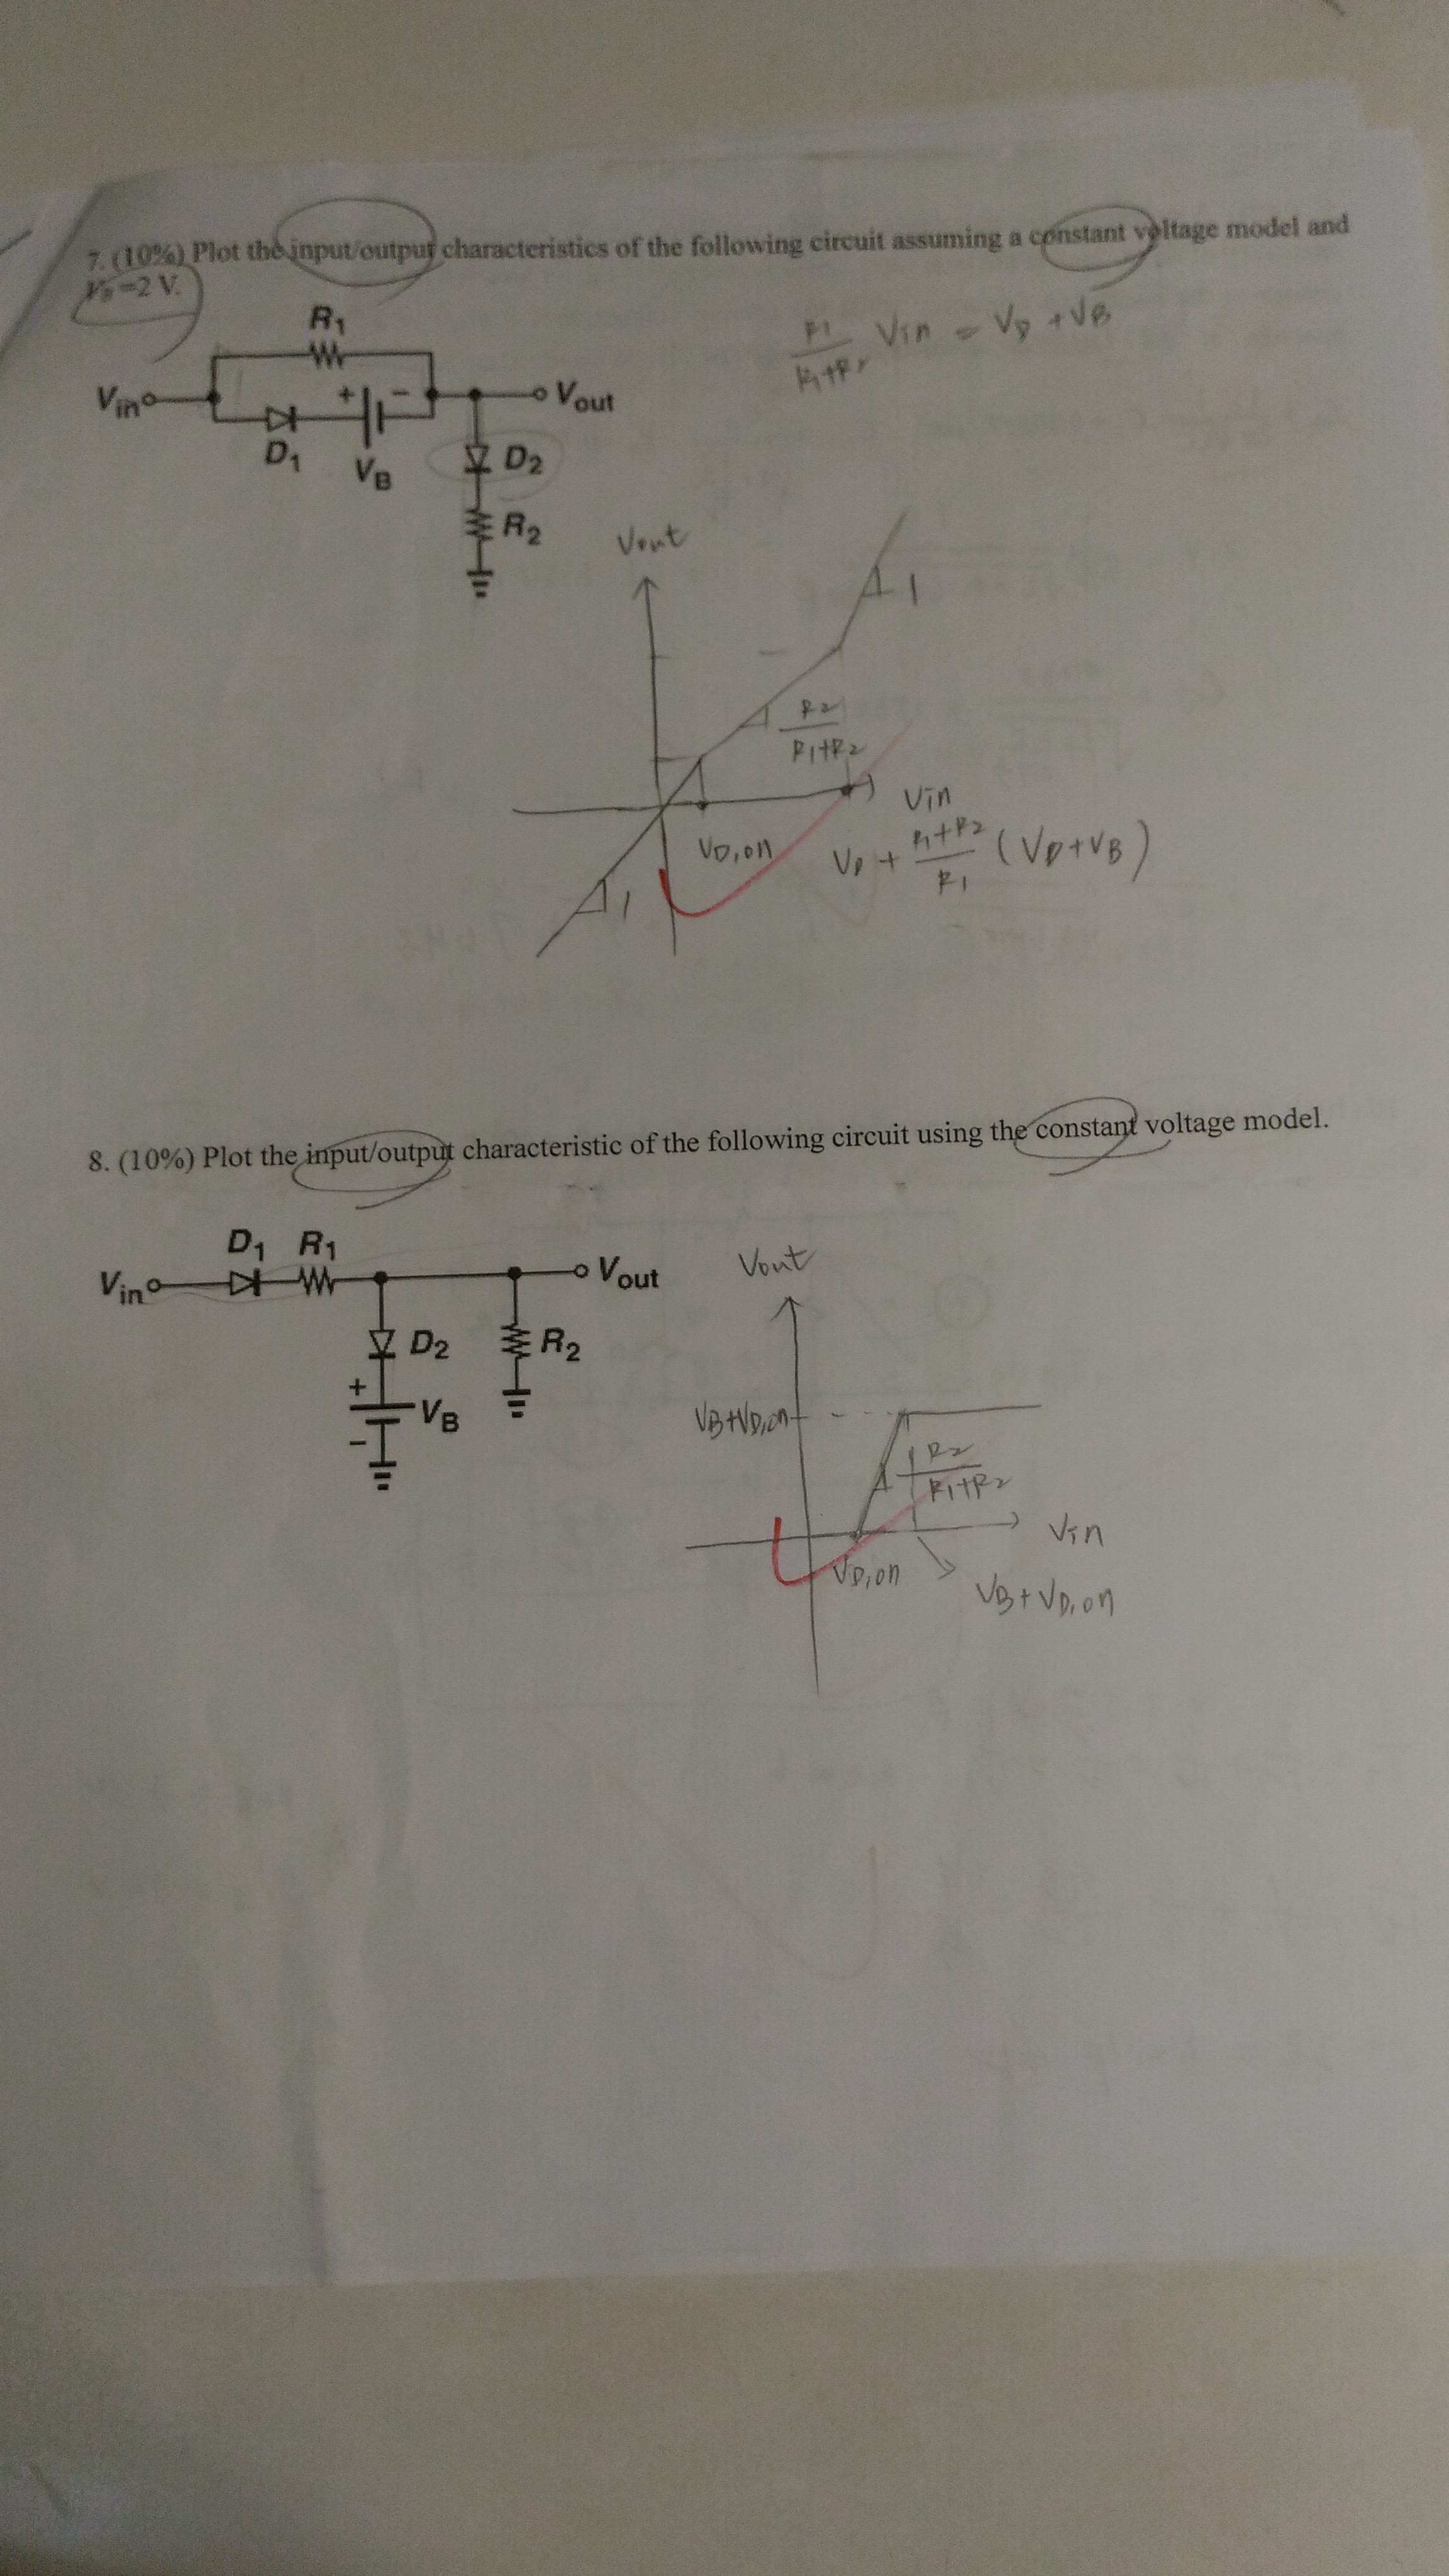 7. (10%) Plot the input/output characteristics of the following circuit assuming a constant voltage model and
V_B =2 V.
R1
Vin
Vout
D1
VB
+ −
D2
R2
R1/(R1+R2) Vin = VD + VB
Vout
1
R2/(R1+R2)
Vin
VD,on
VD + (R1+R2)/R1 (VD+VB)
1
8. (10%) Plot the input/output characteristic of the following circuit using the constant voltage model.
D1 R1
Vin
Vout
D2
R2
+
VB
−
Vout
VB+VD,on
R2/(R1+R2)
Vin
VD,on
VB+VD,on